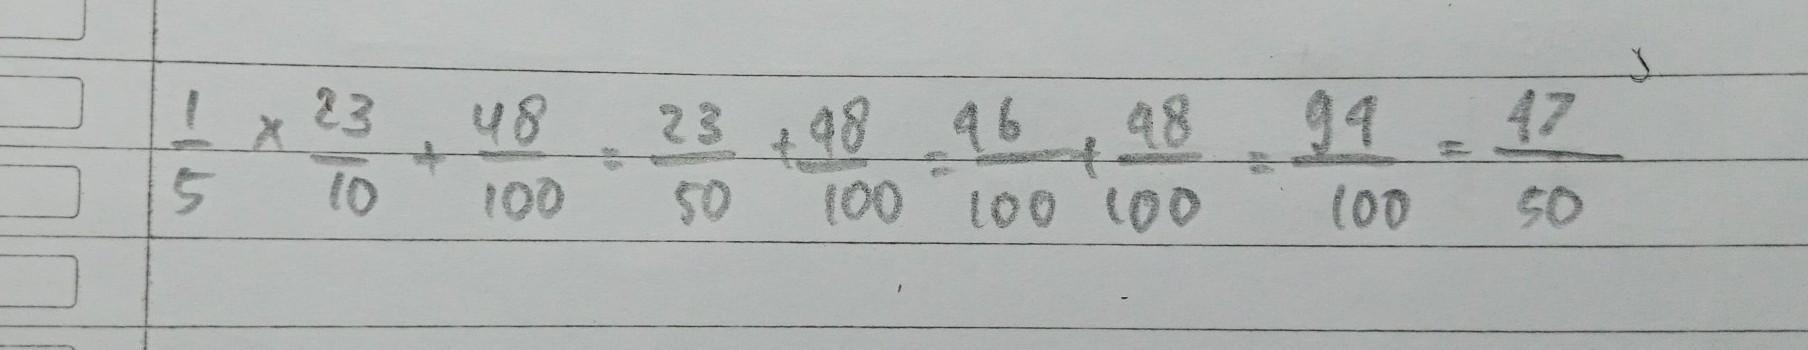 1/5 × 23/10 + 48/100 = 23/50 + 48/100 = 46/100 + 48/100 = 94/100 = 47/50